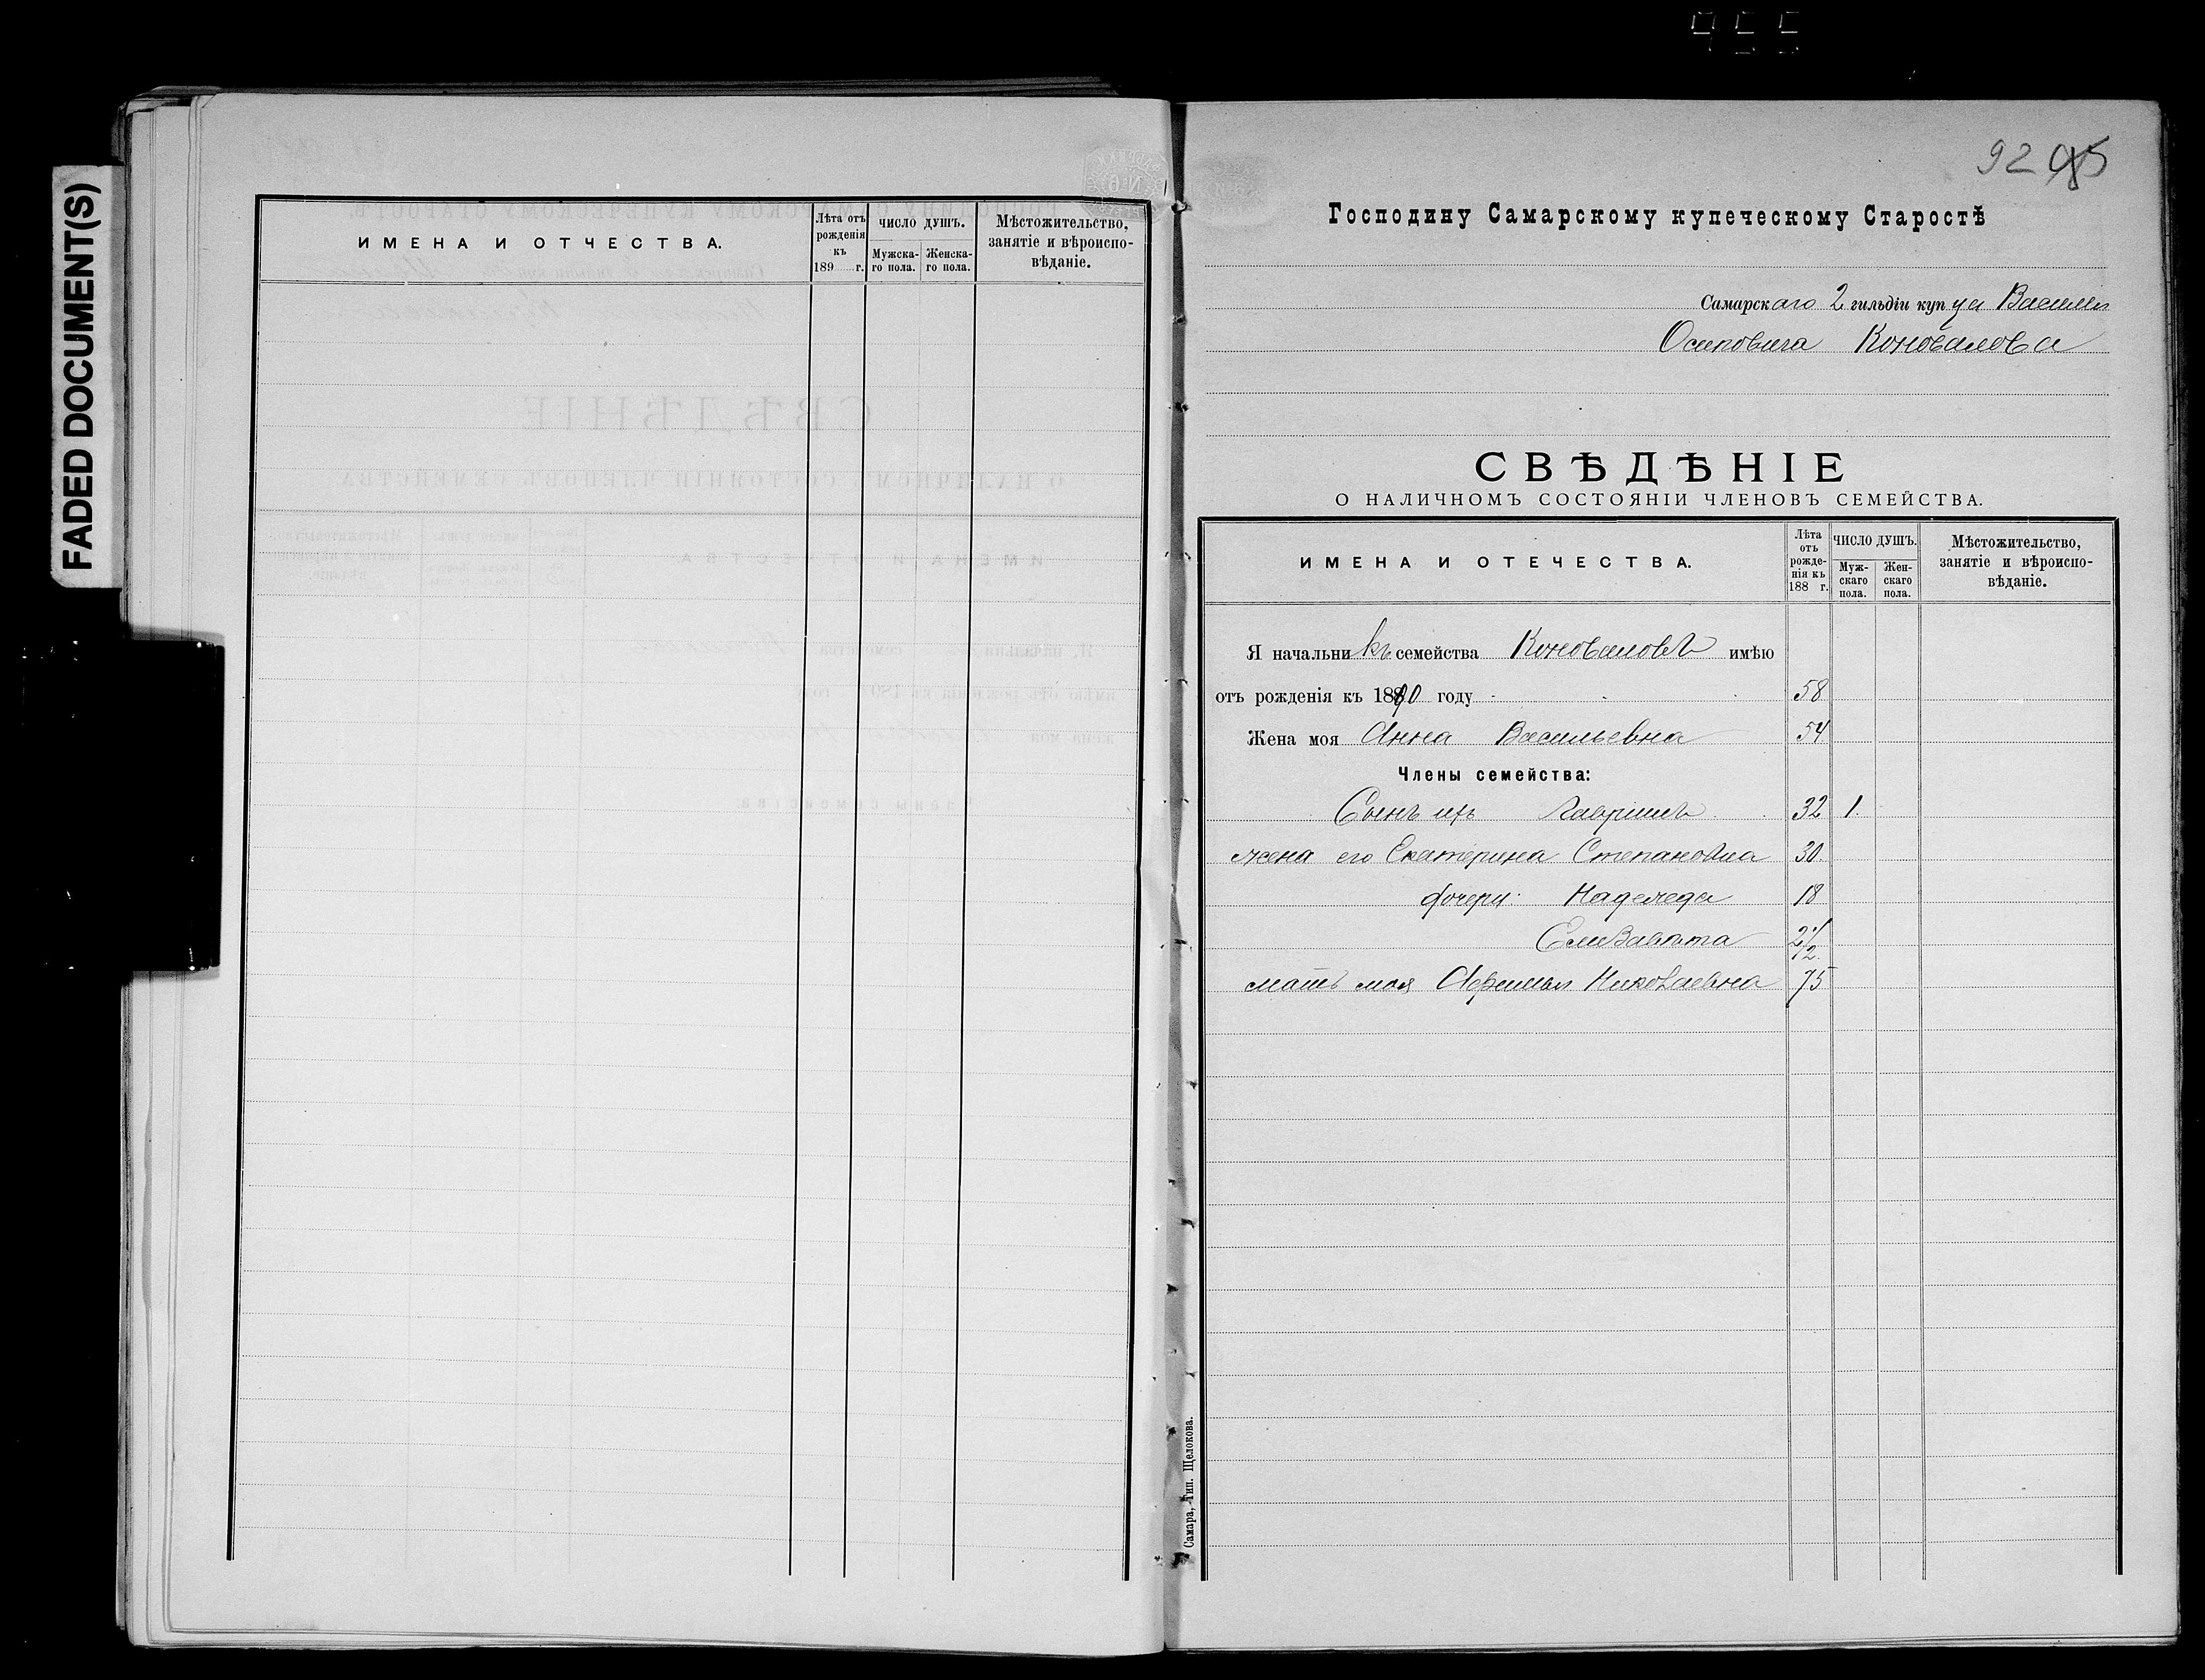 955
FADED DOCUMENT(S)
ИМЕНА И ОТЧЕСТВА.
Лѣта отъ рожденія къ 189 г.
ЧИСЛО ДУШЪ.
Мужска-го пола.
Женска-го пола.
Мѣстожительство, занятіе и вѣроиспо-вѣданіе.
92 95
Господину Самарскому купеческому Старостѣ
Самарскаго 2 гильдіи купца Василія
Осиповича Коновалова
СВѢДѢНІЕ
О НАЛИЧНОМЪ СОСТОЯНІИ ЧЛЕНОВЪ СЕМЕЙСТВА.
ИМЕНА И ОТЕЧЕСТВА.
Лѣта отъ рожде-нія къ 188 г.
ЧИСЛО ДУШЪ.
Муж-скаго пола.
Жен-скаго пола.
Мѣстожительство, занятіе и вѣроиспо-вѣданіе.
Я начальникъ семейства Коноваловъ имѣю
отъ рожденія къ 1890 году 58
Жена моя Анна Васильевна 54
Члены семейства:
Сынъ ихъ Гавріилъ 32 1.
жена его Екатерина Степановна 30.
дочери: Надежда 18
Елизавета 2 1/2.
мать моя Николаевна 75
Самара, Тип. Щелокова.